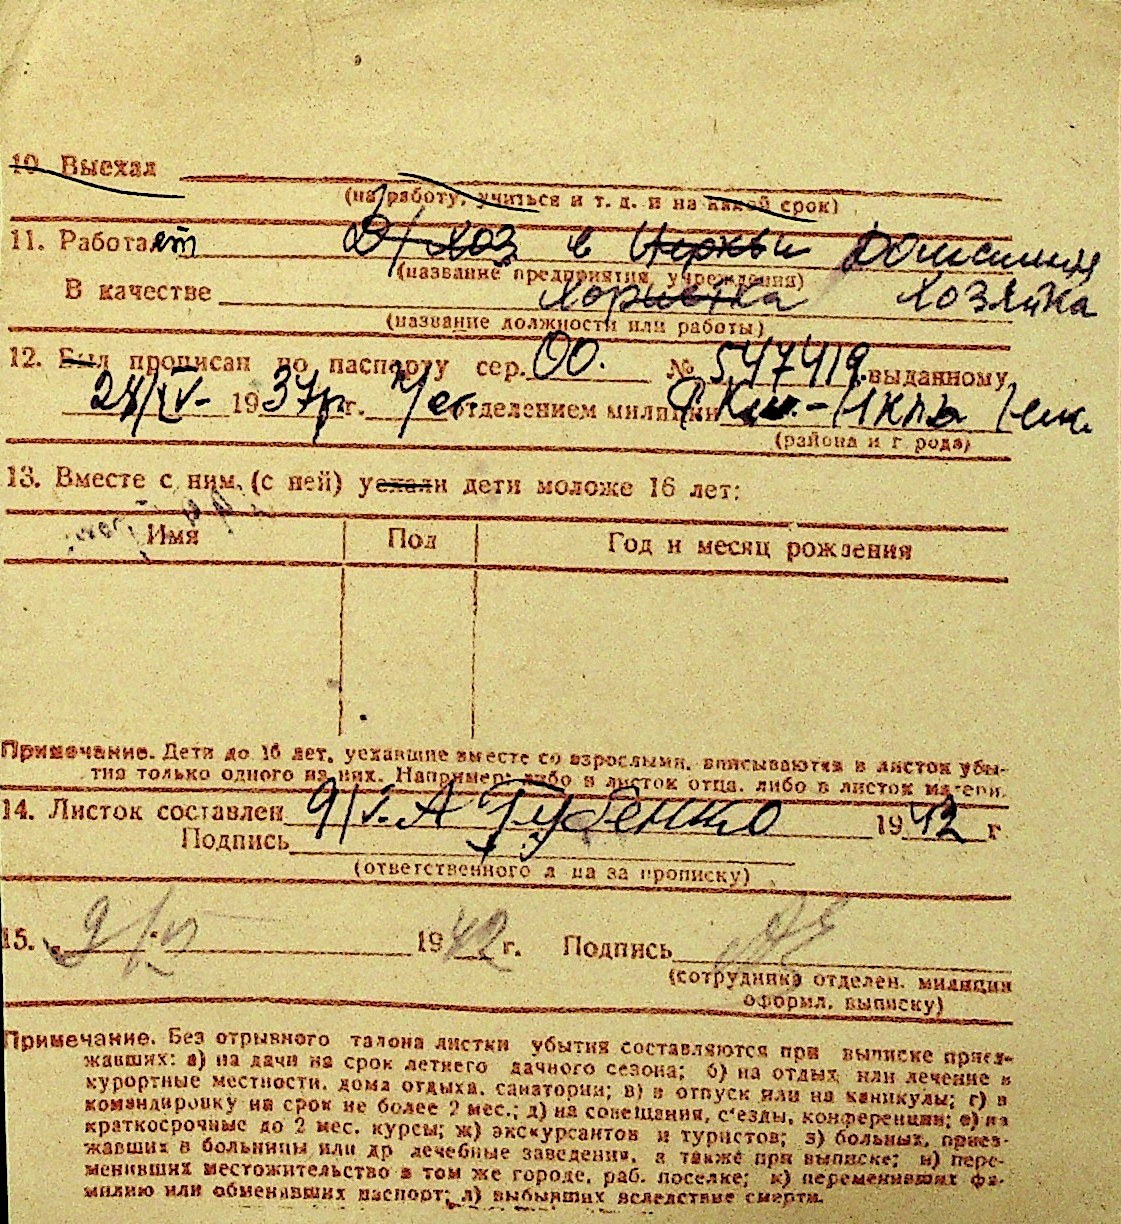 10. Выехал
(на работу, учиться и т. д. и на какой срок)
11. Работает Д/хоз в Церкви Домашняя
(название предприятия, учреждения)
В качестве Хористка Хозяйка
(название должности или работы)
12. Был прописан по паспорту сер. 00. № 547419. выданному
28/IV- 1937г. г. отделением милиции
(района и города)
13. Вместе с ним, (с ней) уехали дети моложе 16 лет:
Имя Пол Год и месяц рождения
Примечание. Дети до 16 лет, уехавшие вместе со взрослыми, вписываются в листок убы-
тия только одного из них. Например: либо в листок отца, либо в листок матери.
14. Листок составлен 9/V. А Губенко 1942 г
Подпись
(ответственного лица за прописку)
15. 9/VI 1942 г. Подпись
(сотрудника отделен. милиции
оформл. выписку)
Примечание. Без отрывного талона листки убытия составляются при выписке приез-
жавших: а) на дачи на срок летнего дачного сезона; б) на отдых или лечение в
курортные местности, дома отдыха, санатории; в) в отпуск или на каникулы; г) в
командировку на срок не более 2 мес.; д) на совещания, с'езды, конференции; е) на
краткосрочные до 2 мес. курсы; ж) экскурсантов и туристов; з) больных, приез-
жавших в больницы или др лечебные заведения, а также при выписке; и) пере-
менивших местожительство в том же городе, раб. поселке; к) переменивших фа-
милию или обменявших паспорт; л) выбывших вследствие смерти.